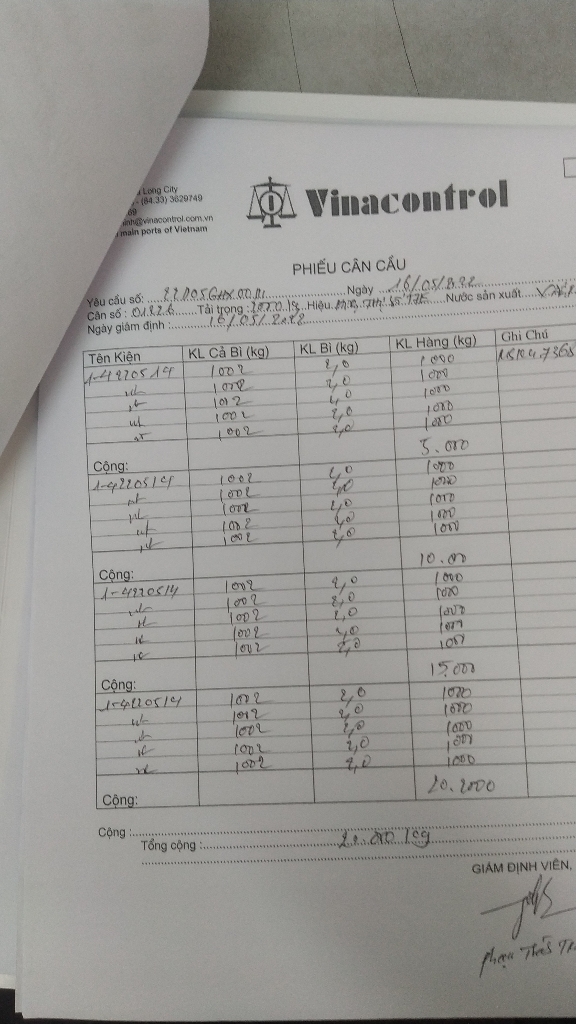 Long City
- (84.33) 3629749
69
inh@vinacontrol.com.vn
main ports of Vietnam
Vinacontrol
PHIẾU CÂN CẨU
Yêu cầu số: Ngày 16/05/2022
Cân số : 01226 Tải trọng : Hiệu Nước sản xuất
Ngày giám định : 16/05/2022
Tên Kiện KL Cả Bì (kg) KL Bì (kg) KL Hàng (kg) Ghi Chú
1-4220514 1002 2,0 1000
1002 2,0 1000
1002 2,0 1000
1002 2,0 1000
1002 2,0 1000
Cộng: 5.000
1-4220514 1002 2,0 1000
1002 2,0 1000
1002 2,0 1000
1002 2,0 1000
1002 2,0 1000
Cộng: 10.00
1-4220514 1002 2,0 1000
1002 2,0 1000
1002 2,0 1000
1002 2,0 1000
1002 2,0 1000
Cộng: 15.000
1-4220514 1002 2,0 1000
1002 2,0 1000
1002 2,0 1000
1002 2,0 1000
1002 2,0 1000
Cộng: 20.2000
Cộng :
Tổng cộng : 20.000 kg
GIÁM ĐỊNH VIÊN,